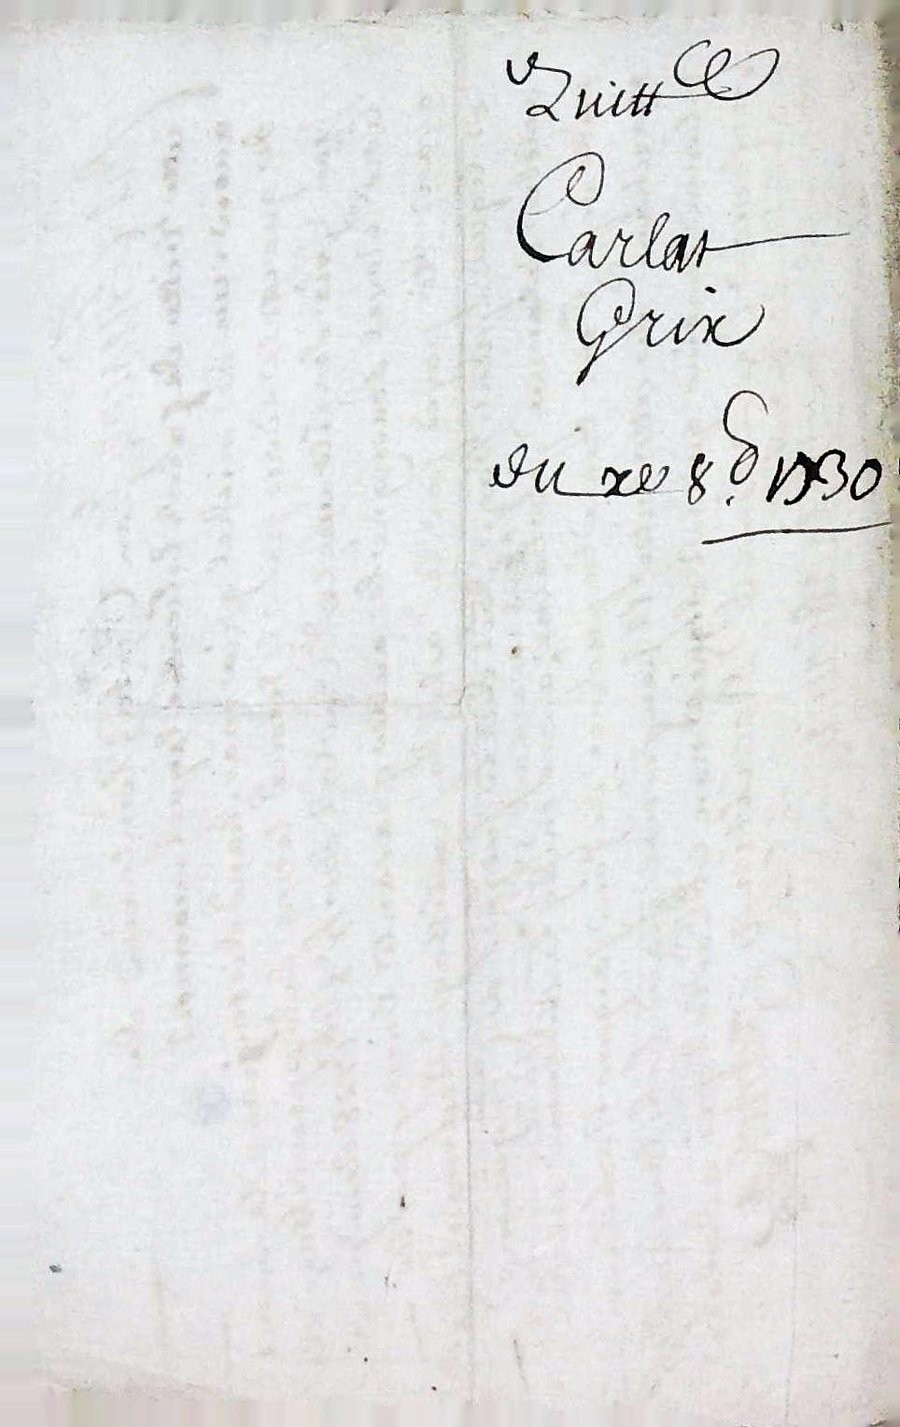 Quitt ce
Carlat
Grix
du xe 8b. 1730